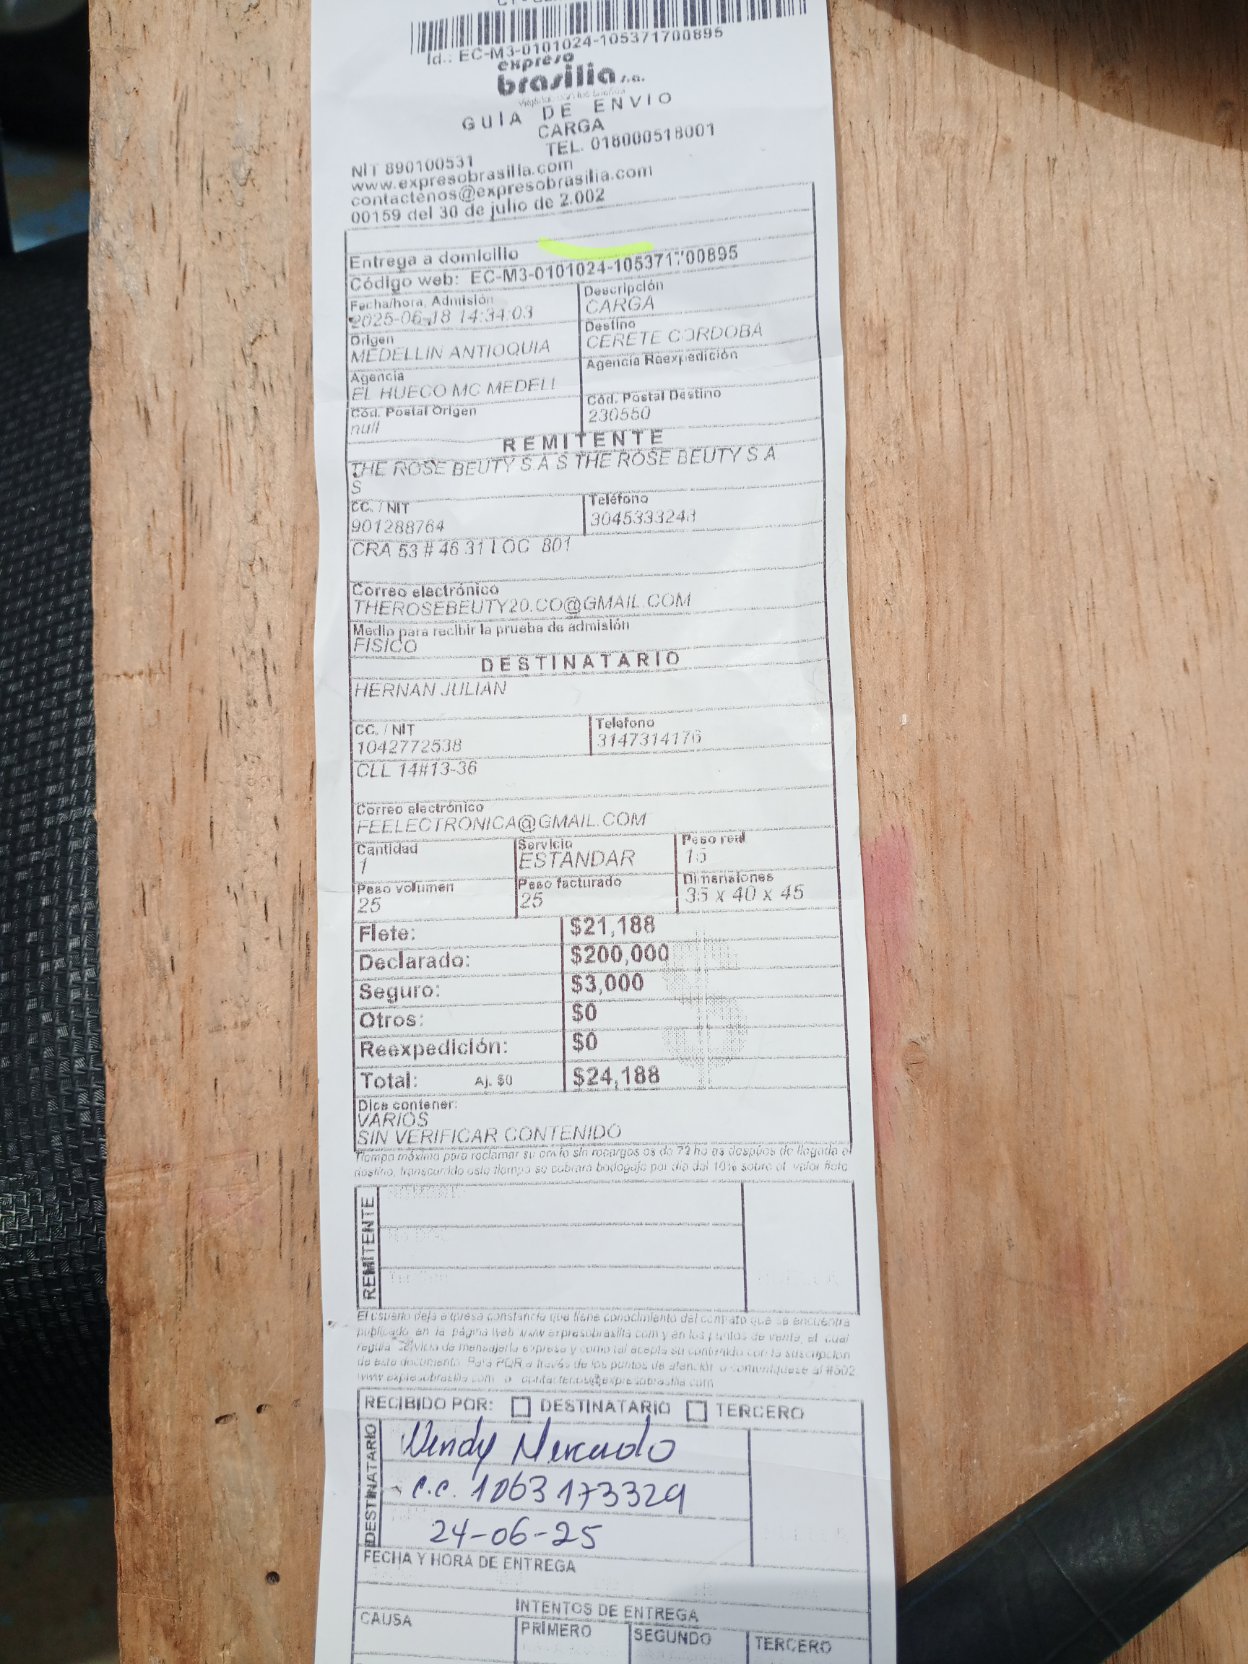 Id.: EC-M3-0101024-105371700895
expreso
brasilia s.a.
GUIA DE ENVIO
CARGA
TEL. 018000518001
NIT 890100531
www.expresobrasilia.com
contactenos@expresobrasilia.com
00159 del 30 de julio de 2.002
Entrega a domicilio
Código web: EC-M3-0101024-105371700895
Fecha/hora Admisión Descripción
2025-06-18 14:34:03 CARGA
Origen Destino
MEDELLIN ANTIOQUIA CERETE CORDOBA
Agencia Agencia Reexpedición
EL HUECO MC MEDELL
Cód. Postal Origen Cód. Postal Destino
null 230550
REMITENTE
THE ROSE BEUTY S A S THE ROSE BEUTY S A
S
CC. / NIT Teléfono
901288764 3045333243
CRA 53 # 46 31 LOC 801
Correo electrónico
THEROSEBEUTY20.CO@GMAIL.COM
Medio para recibir la prueba de admisión
FISICO
DESTINATARIO
HERNAN JULIAN
CC. / NIT Telefono
1042772538 3147314176
CLL 14#13-36
Correo electrónico
FEELECTRONICA@GMAIL.COM
Cantidad Servicio Peso real
1 ESTANDAR 15
Peso volumen Peso facturado Dimensiones
25 25 35 x 40 x 45
Flete: $21,188
Declarado: $200,000
Seguro: $3,000
Otros: $0
Reexpedición: $0
Total: Aj. $0 $24,188
Dice contener:
VARIOS
SIN VERIFICAR CONTENIDO
Tiempo máximo para reclamar su envío sin recargos es de 72 horas después de llegada al
destino, transcurrido este tiempo se cobrará bodegaje por día del 10% sobre el valor flete
REMITENTE
El usuario deja expresa constancia que tiene conocimiento del contrato que se encuentra
publicado en la página web www.expresobrasilia.com y en los puntos de venta, el cual
regula servicio de mensajería expresa y como tal acepta su contenido con la suscripción
de este documento. Para PQR a través de los puntos de atención o comuníquese al #502
www.expresobrasilia.com o contactenos@expresobrasilia.com
RECIBIDO POR: DESTINATARIO TERCERO
DESTINATARIO
Wendy Mercado
c.c. 1063173329
24-06-25
FECHA Y HORA DE ENTREGA
INTENTOS DE ENTREGA
CAUSA PRIMERO SEGUNDO TERCERO